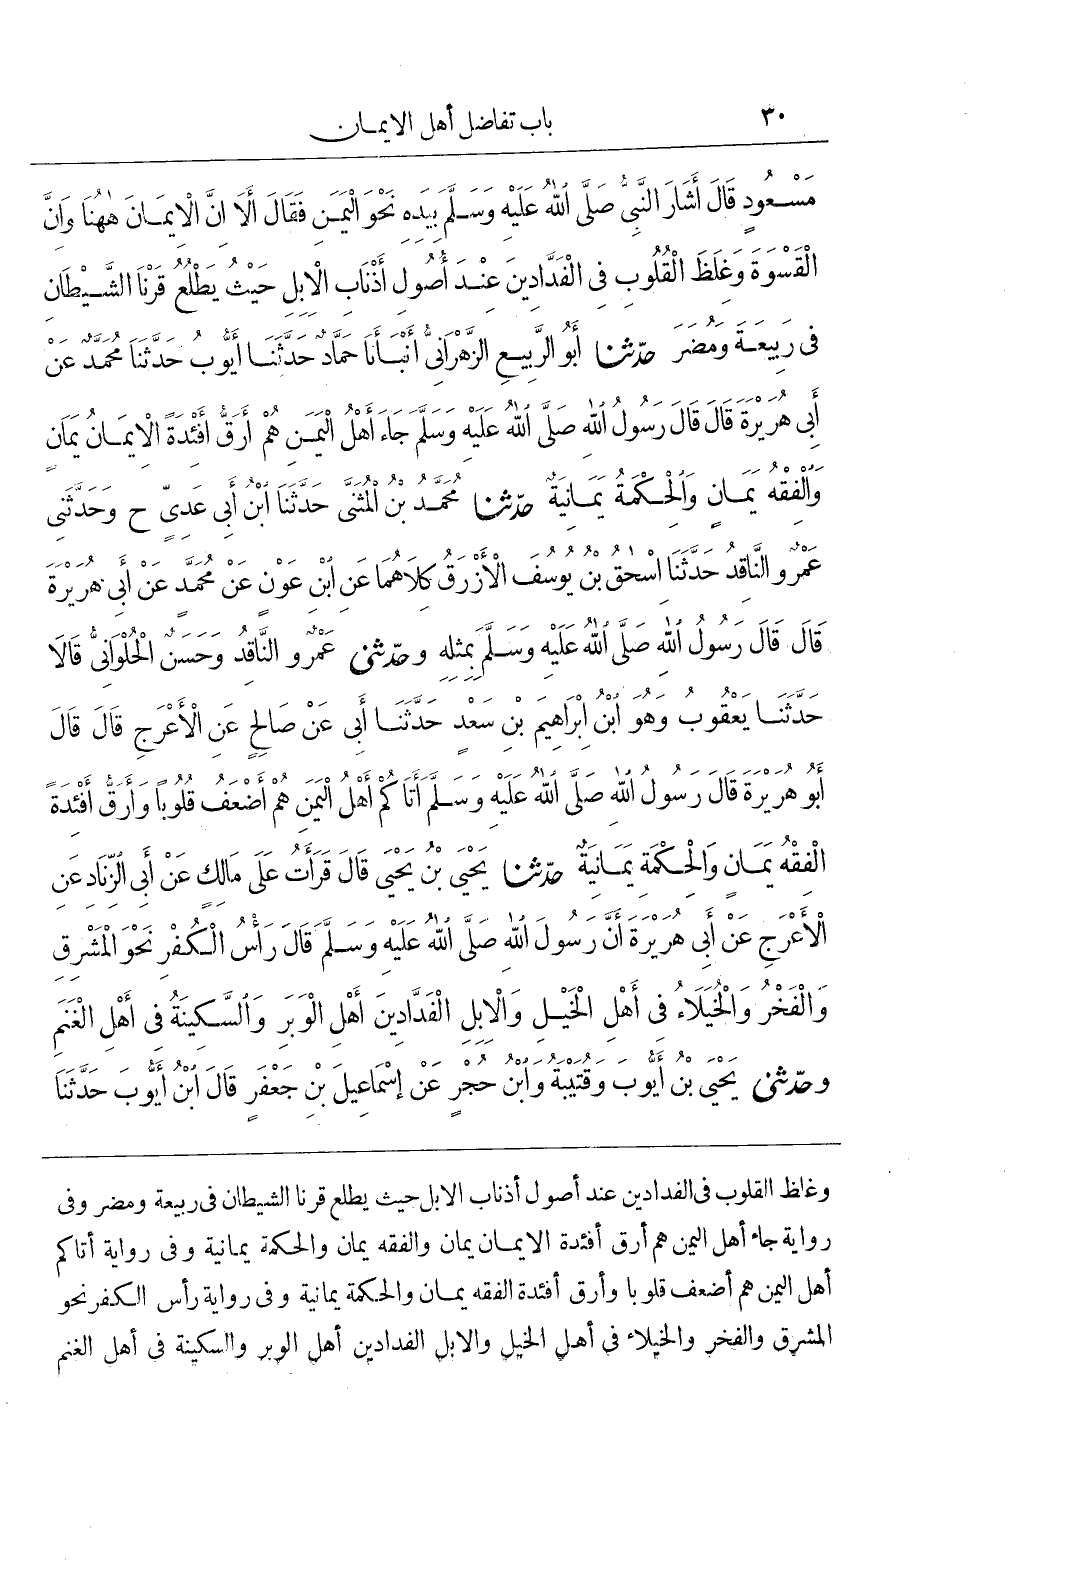 ٣٠ باب تفاضل أهل الايمـان
مَسْـعُودٍ قَالَ أَشَارَ النَّبِىُّ صَلَّى اللهُ عَلَيْهِ وَسَـلَّمَ بِيَدِهِ نَحْوَ الْيَمَـنِ فَقَالَ أَلَا انَّ الْايمَـانَ هٰهُنَا وَانَّ
الْقَسْوَةَ وَغِلَظَ الْقُلُوبِ فِى الْفَدَّادِينَ عِنْـدَ أُصُولِ أَذْنَابِ الْابِلِ حَيْثُ يَطْلُعُ قَرْنَا الشَّـيْطَانِ
فِى رَبِيعَـةَ وَمُضَرَ حدّثنا أَبُو الرَّبِيعِ الزَّهْرَانِىُّ أَنْبَأَنَا حَمَّادٌ حَدَّثَنَـا أَيُّوبُ حَدَّثَنَا مُحَمَّدٌ عَنْ
أَبِى هُرَيْرَةَ قَالَ قَالَ رَسُولُ اللهِ صَلَّى اللهُ عَلَيْهِ وَسَلَّمَ جَاءَ أَهْلُ الْيَمَـنِ هُمْ أَرَقُّ أَفْئِدَةً الْايمَـانُ يَمَانٍ
وَالْفِقْهُ يَمَـانٍ وَالْحِـكْمَةُ يَمَـانِيَةٌ حدّثنا مُحَمَّـدُ بْنُ الْمُثَنَّى حَدَّثَنَا ابْنُ أَبِى عَدِىٍّ ح وَحَدَّثَنِى
عَمْرٌو النَّاقِدُ حَدَّثَنَا اسْحٰقُ بْنُ يُوسُفَ الْأَزْرَقُ كِلَاهُمَا عَنِ ابْنِ عَوْنٍ عَنْ مُحَمَّدٍ عَنْ أَبِى هُرَيْرَةَ
قَالَ قَالَ رَسُولُ اللهِ صَلَّى اللهُ عَلَيْهِ وَسَـلَّمَ بِمِثْلِهِ وحدّثنى عَمْرٌو النَّاقِدُ وَحَسَنٌ الْحُلْوَانِىُّ قَالَا
حَدَّثَنَـا يَعْقُوبُ وَهُوَ ابْنُ إِبْرَاهِيمَ بْنِ سَعْدٍ حَدَّثَنَـا أَبِى عَنْ صَالِحٍ عَنِ الْأَعْرَجِ قَالَ قَالَ
أَبُو هُرَيْرَةَ قَالَ رَسُولُ اللهِ صَلَّى اللهُ عَلَيْهِ وَسَـلَّمَ أَتَاكُمْ أَهْلُ الْيَمَنِ هُمْ أَضْعَفُ قُلُوبًا وَأَرَقُّ أَفْئِدَةً
الْفِقْهُ يَمَـانٍ وَالْحِـكْمَةُ يَمَـانِيَةٌ حدّثنا يَحْيَى بْنُ يَحْيَى قَالَ قَرَأْتُ عَلَى مَالِكٍ عَنْ أَبِى الزِّنَادِ عَنِ
الْأَعْرَجِ عَنْ أَبِى هُرَيْرَةَ أَنَّ رَسُولَ اللهِ صَلَّى اللهُ عَلَيْهِ وَسَـلَّمَ قَالَ رَأْسُ الْـكُفْرِ نَحْوَ الْمَشْرِقِ
وَالْفَخْرُ وَالْخُيَلَاءُ فِى أَهْلِ الْخَيْـلِ وَالْابِلِ الْفَدَّادِينَ أَهْلِ الْوَبَرِ وَالسَّـكِينَةُ فِى أَهْلِ الْغَنَمِ
وحدّثنى يَحْيَى بْنُ أَيُّوبَ وَقُتَيْبَةُ وَابْنُ حُجْرٍ عَنْ إِسْمَاعِيلَ بْنِ جَعْفَرٍ قَالَ ابْنُ أَيُّوبَ حَدَّثَنَا
وغلظ القلوب فى الفدادين عند أصول أذناب الابل حيث يطلع قرنا الشيطان فى ربيعة ومضر وفى
رواية جاء أهل اليمن هم أرق أفئدة الايمـان يمان والفقه يمان والحكمة يمانية وفى رواية أتاكم
أهل اليمن هم أضعف قلوبا وأرق أفئدة الفقه يمـان والحكمة يمانية وفى رواية رأس الـكفر نحو
المشرق والفخر والخيلاء فى أهل الخيل والابل الفدادين أهل الوبر والسكينة فى أهل الغنم